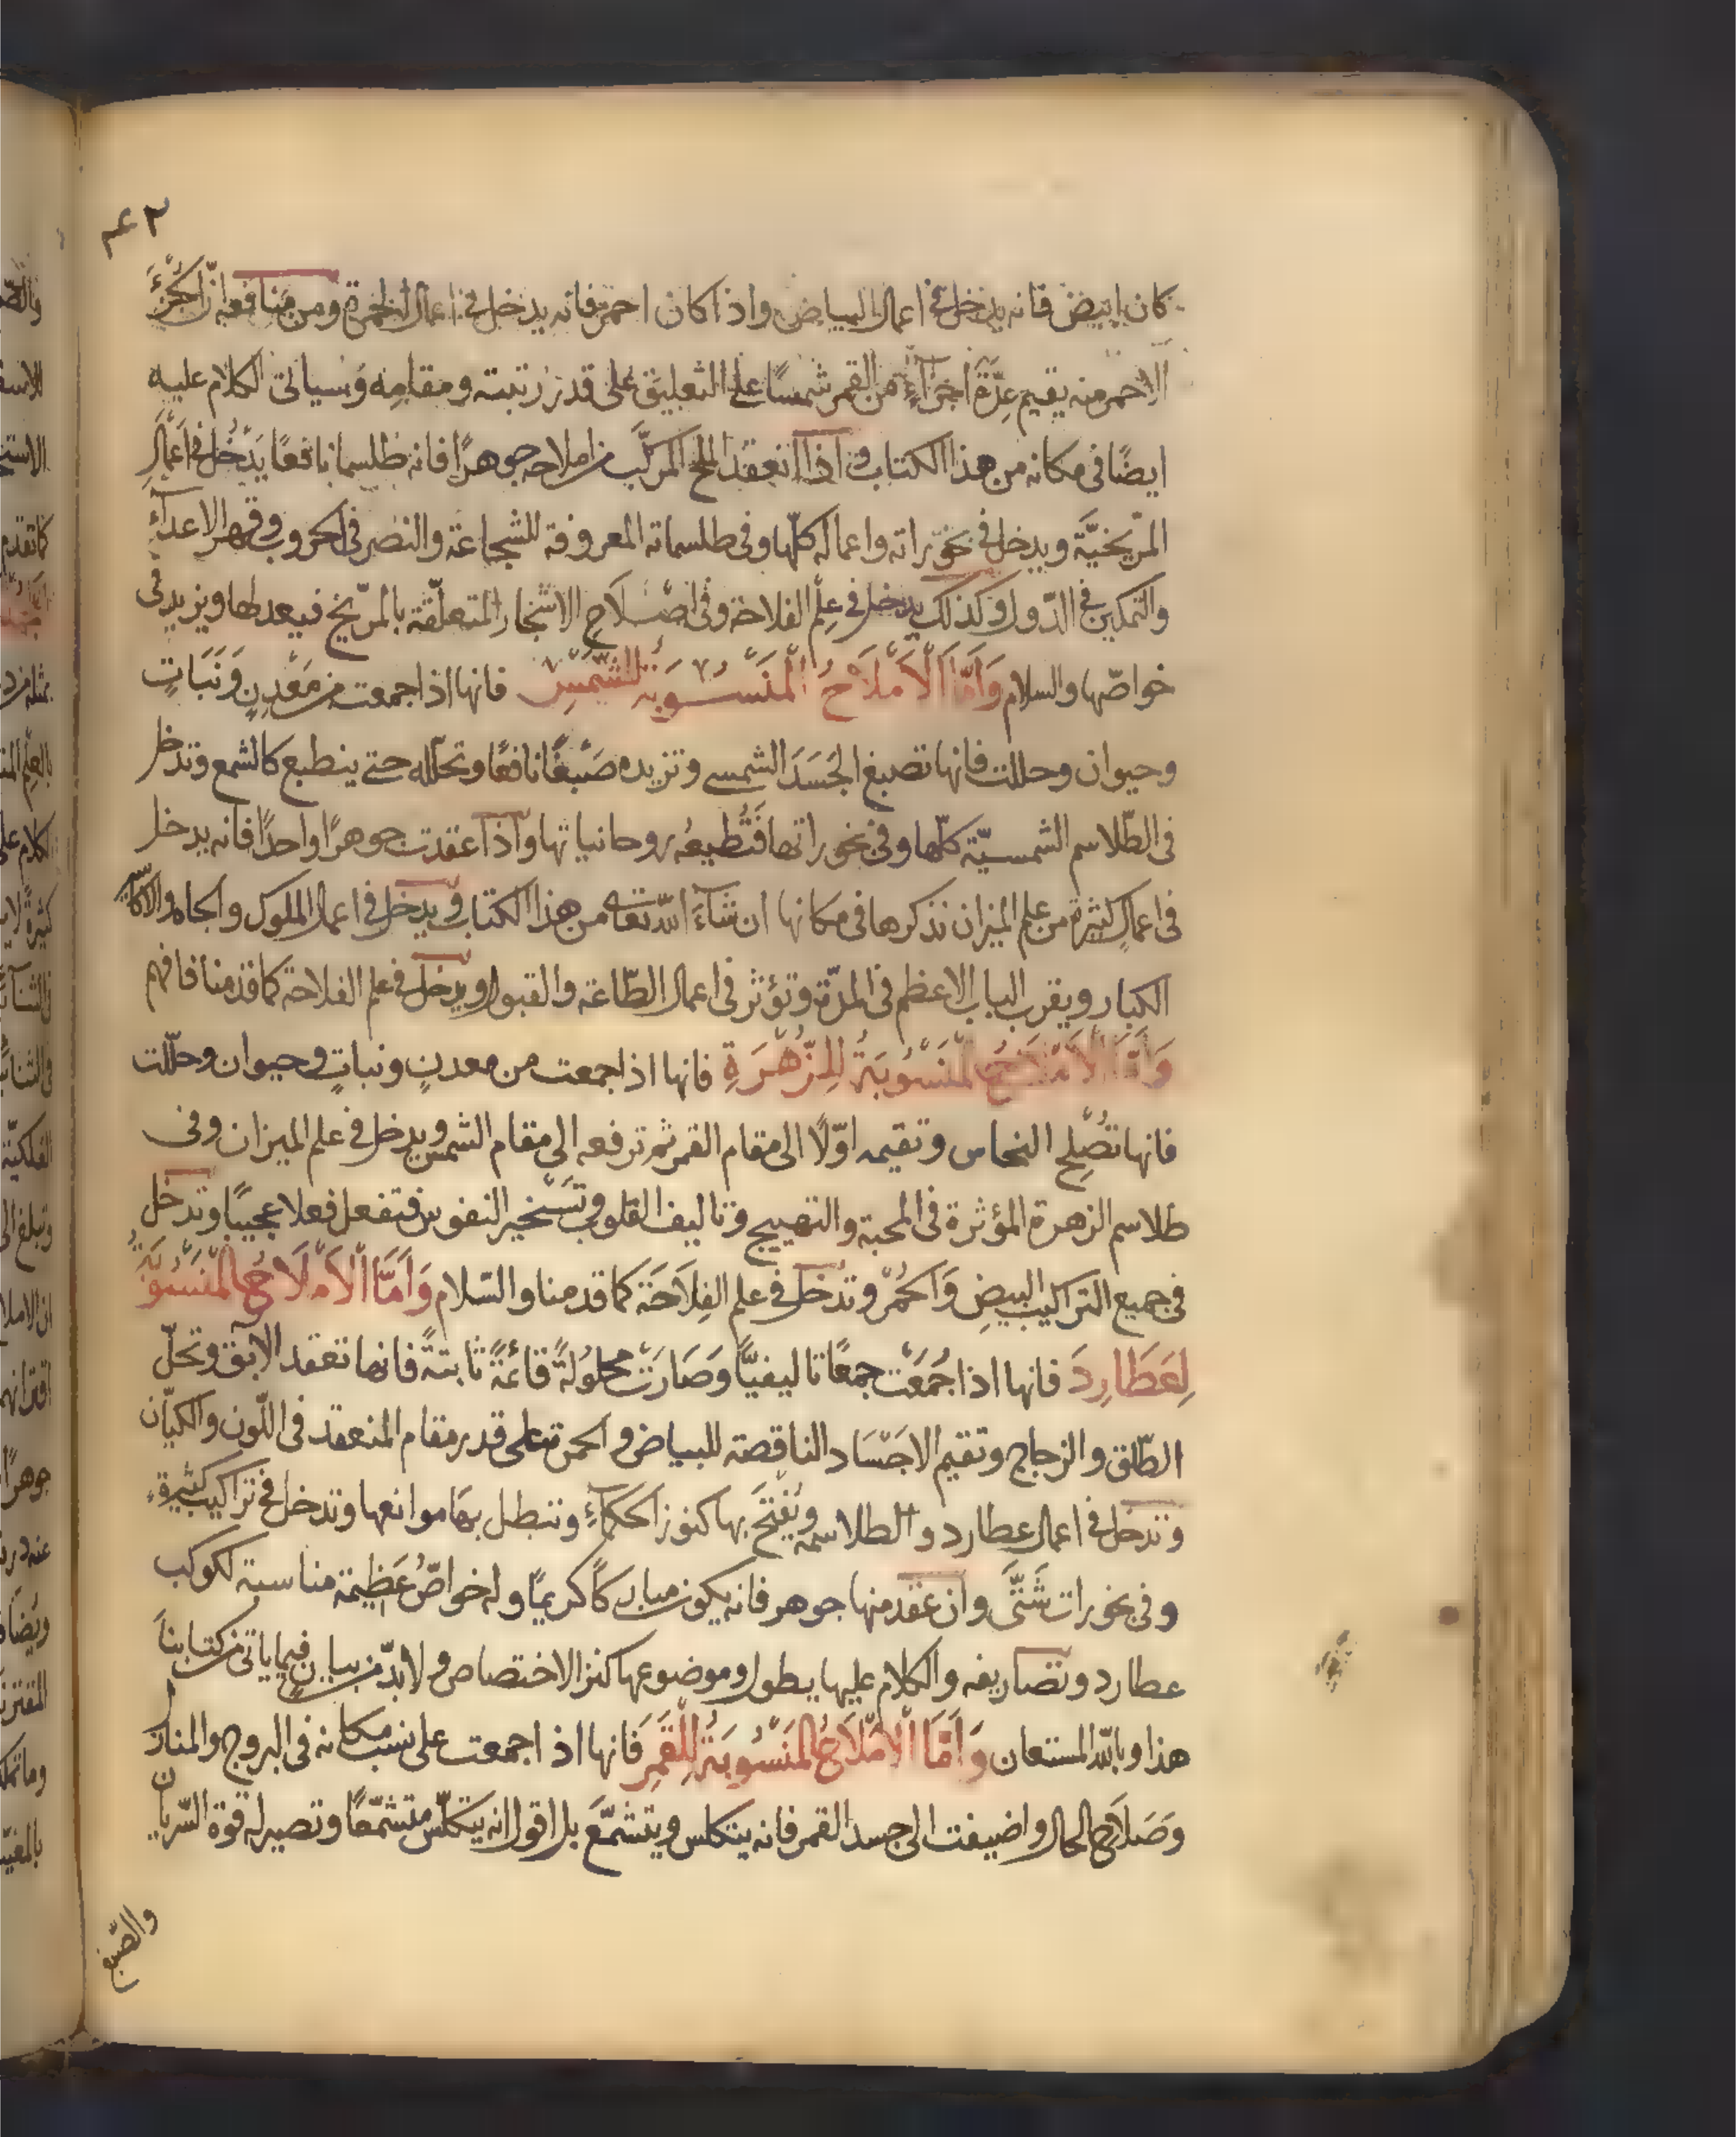 كان ابيض فانه يدخل فى اعمال البياض واذا كان احمر فانه يدخل فى اعمال الحمرة ومن منافعه ان الجزء
الاحمر منه يقيم عدّة اجزآءٍ من القمر شمسًا على التعليق على قدر رتبته ومقامه وسياتى الكلام عليه
ايضًا فى مكانه من هذا الكتاب واذا انعقد الملح المركّب من املاحه جوهرًا فانه طلسما نافعًا يَدْخُل فى اعمالِ
المرّيخيَّة ويدخل فى بخوراته واعماله كلّها وفى طلسماته المعروفة للشجاعة والنصر فى الحروب وقهر الاعدآءِ
والتمكين فى الدّول وكذلك يدخل فى عِلْم الفلاحة وفى اصْلَاحِ الاشجار المتعلّقة بالمرّيخ فيعدلها ويزيد فى
خواصّها والسلام وَاَمَّا الْاَمْلَاحُ الْمَنْسُوبَةُ لِلشَّمْسِ فانها اذا جمعت من مَعْدِنٍ وَنَبَاتٍ
وحيوان وحللت فانها تصبغ الجَسَدَ الشمسى وتزيده صَبْغًا نافعًا وتحلّله حتى ينطبع كالشمع وتدخل
فى الطّلاسم الشمسيّة كلّها وفى بخوراتها فَتُطيعُه روحانياتها واذا عقدت جوهرًا واحدًا فانه يدخل
فى اعمالٍ كثيرة من علم الميزان نذكرها فى مكانها ان شآءَ اللّه تعالى من هذا الكتاب ويدخل فى اعمال الملوك والجاه والاكاسر
الكبار ويقرب الباب الاعظم فى المدّة وتؤثر فى اعمال الطّاعة والقبول ويدخل فى علم الفلاحة كما قدمنا فافهم
وَاَمَّا الْاَمْلَاحُ الْمَنْسُوبَةُ لِلزُّهْرَةِ فانها اذا جمعت من معدنٍ ونباتٍ وحيوان وحلّلت
فانها تُصْلِح النحاس وتقيمه اوّلًا الى مقام القمر ثم ترفعه الى مقام الشمس ويدخل فى علم الميزان وفى
طلاسم الزهرة المؤثرة فى المحبة والتهييج وتاليف القلوب وتَسْخير النفوس فتفعل فعلا عجيبًا وتدخل
فى جميع التراكيب البيضِ وَالحُمْر وتدخل فى علم الفِلَاحَة كما قدمنا والسّلام وَاَمَّا الْاَمْلَاحُ الْمَنْسُوبَةُ
لِعَطَارِدَ فانها اذا جُمَعَت جمعًا تاليفيًّا وَصَارَتْ محلولةً قائمةً ثابتةً فانها تعقد الابق وتحلّ
الطّلق والزجاج وتقيم الاجْسَاد الناقصة للبياض والحمرة على قدر مقام المنعقد فى اللّون والكيان
وتدخل فى اعمال عطارد والطلاسمه ويُفْتَحَ بها كنوز الحكمآءِ وتبطل بها موانعها وتدخل فى تراكيب كثيرةٍ
وفى بخورات شَتَّى وان عقد منها جوهر فانه يكون مباركًا كريمًا وله خواصّ عَظِيمة مناسبة لكوكب
عطارد وتصاريفه والكلام عليها يطول وموضوعها كنز الاختصاص ولا بدّ من بيانٍ فيما ياتى من كتابنا
هذا وباللّه المستعان وَاَمَّا الْاَمْلَاحُ الْمَنْسُوبَةُ لِلْقَمَرِ فانها اذا جمعت على نسب مكانه فى البروج والمنازل
وَصَلَاحِ الحال واضيفت الى جسد القمر فانه يتكلس ويتشمَّعَ بل اقول انه يتكلّس متشمّعًا وتصير له قوة السّريان
والصّبغ